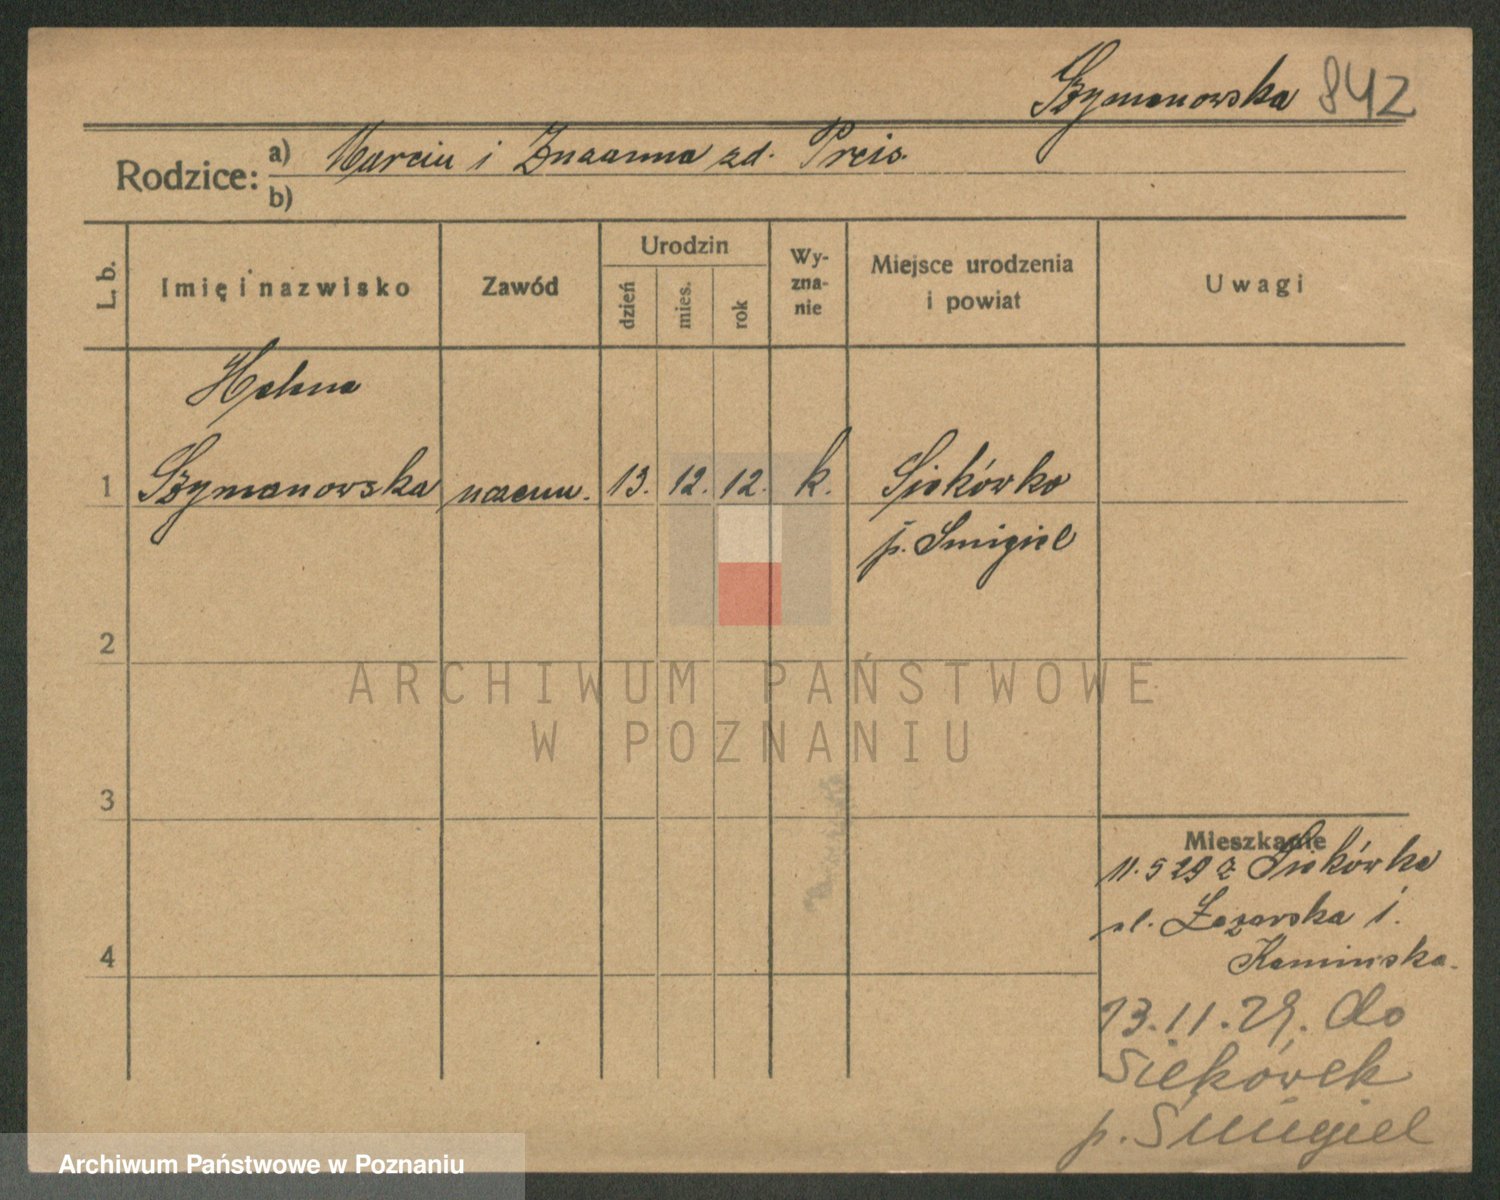 Szymanowska 842
Rodzice: a) Marcin i Zuzanna zd. Preis.
b)
L. b.
Imię i nazwisko
Zawód
Urodzin
dzień
mies.
rok
Wy-
zna-
nie
Miejsce urodzenia
i powiat
Uwagi
Helena
1 Szymanowska uczenn. 13. 12. 12. k. Siekówko
p. Smigiel
2
ARCHIWUM PAŃSTWOWE
W POZNANIU
3
Mieszkanie
11.5 29 z Siekówka
ul. Łazarska 1.
Kaminska.
4
13.11.29. do
Siekówek
p. Śmigiel
Archiwum Państwowe w Poznaniu